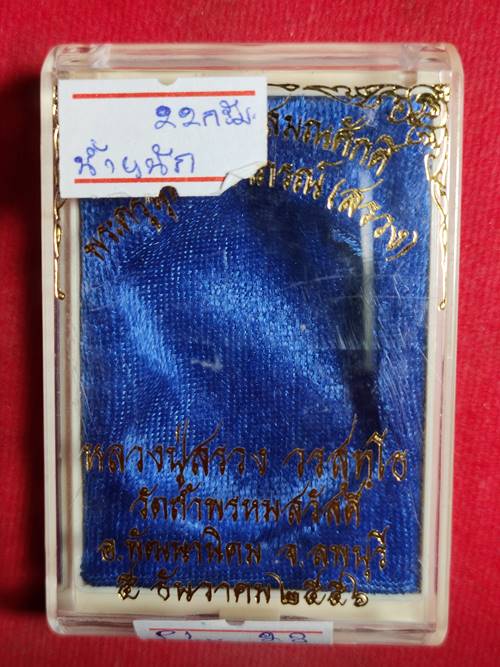 ๒๒กรัม
น้ำหนัก
สมณศักดิ์
ภรณ์ (สรวง)
หลวงปู่สรวง วรสุทฺโธ
วัดถ้ำพรหมสวัสดิ์
อ.พัฒนานิคม จ.ลพบุรี
๕ ธันวาคม ๒๕๕๖